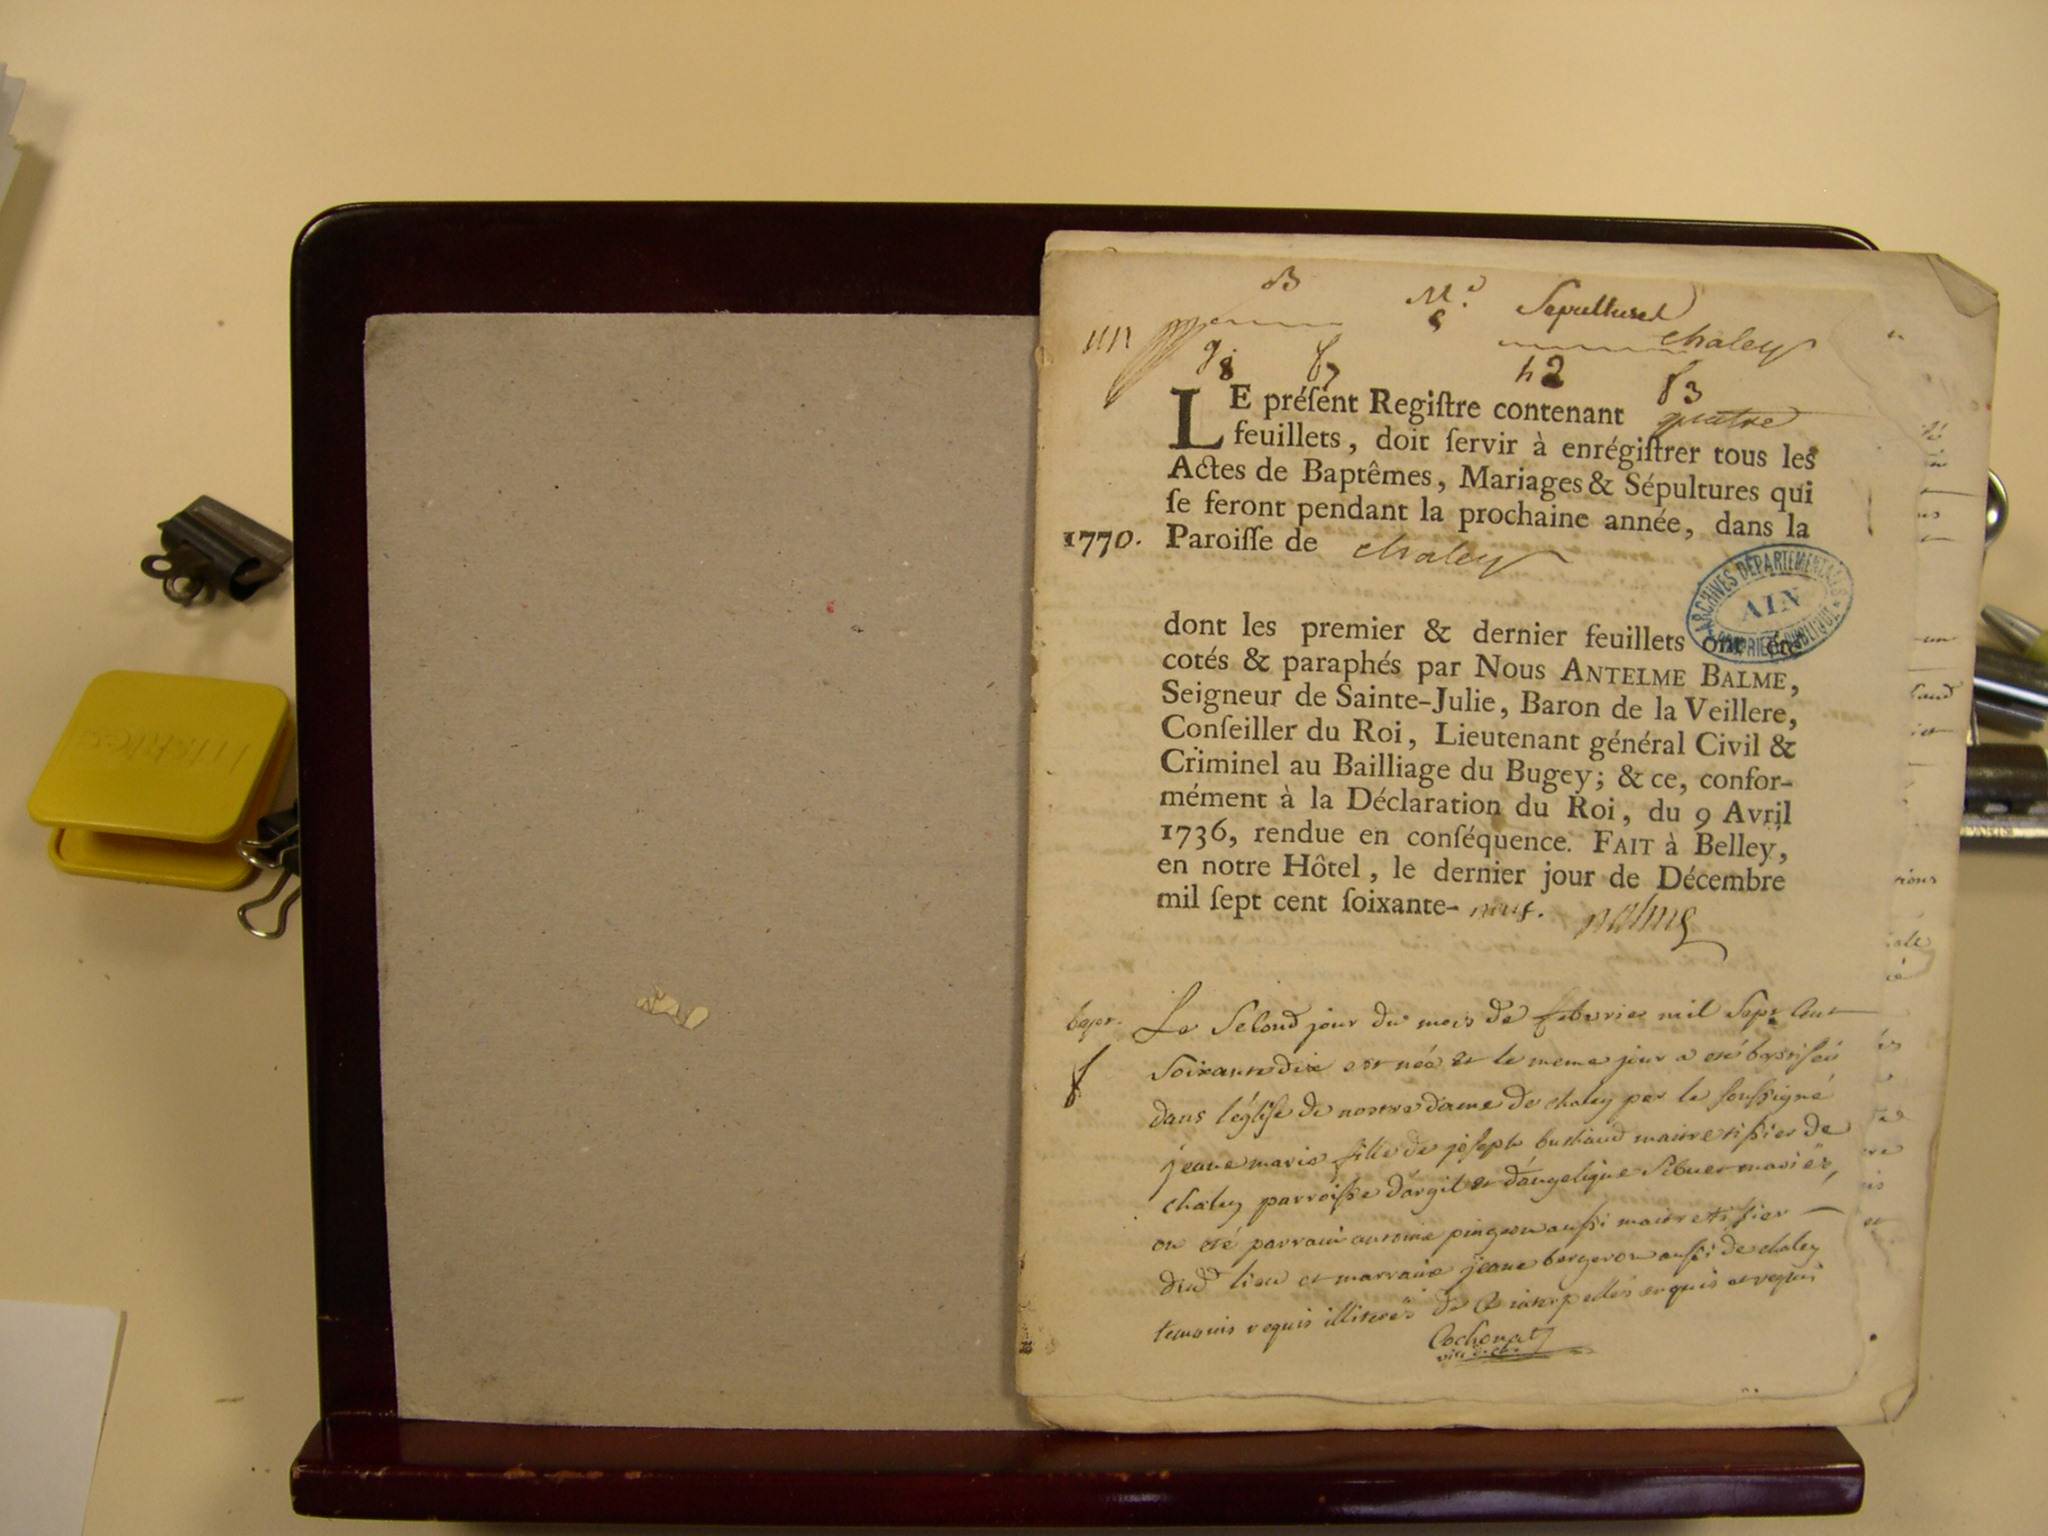 B M.e Sepultures
8 chaley
g 8 f 7 h 2 f 3
LE préſent Regiſtre contenant quatre
feuillets, doit ſervir à enrégiſtrer tous les
Actes de Baptêmes, Mariages & Sépultures qui
ſe feront pendant la prochaine année, dans la
1770. Paroiſſe de chaley
ARCHIVES DÉPARTEMENTALES
AIN
PROPRIÉTÉ PUBLIQUE
dont les premier & dernier feuillets ont été
cotés & paraphés par Nous ANTELME BALME,
Seigneur de Sainte-Julie, Baron de la Veillere,
Conſeiller du Roi, Lieutenant général Civil &
Criminel au Bailliage du Bugey; & ce, confor-
mément à la Déclaration du Roi, du 9 Avril
1736, rendue en conſéquence. FAIT à Belley,
en notre Hôtel, le dernier jour de Décembre
mil ſept cent ſoixante-neuf. Balme
Le Second jour du mois de febvrier mil Sept Cent
Soixante dix est née et le meme jour a eté baptisée
dans l'église de nostre dame de chaley par le soussigné
f jeane marie fille de joseph maitre tissier de
chaley parroisse d'argil et d'angelique Sibuet mariés,
on eté parrain antoine pingeon aussi maitre tissier
dud lieu et marraine jeane bergeron aussi de chaley
temoins requis illiterés de Ce interpellés enquis et requis
Cochonat